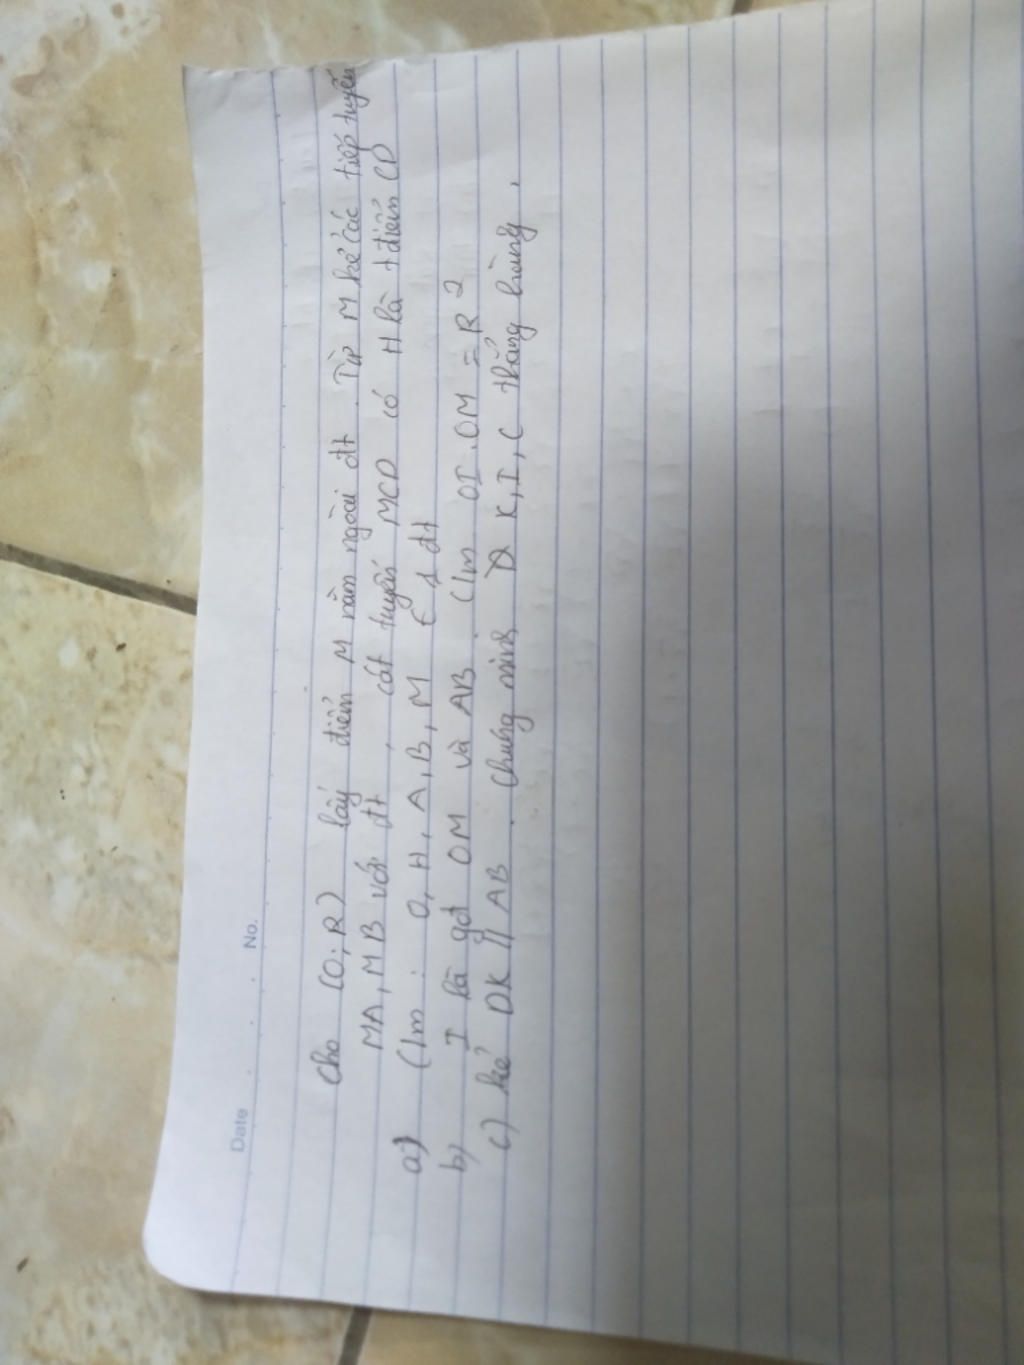 Date . . No.
Cho (O; R) lấy điểm M nằm ngoài đt. Từ M kẻ các tiếp tuyến
MA, MB với đt, cát tuyến MCD có H là t điểm CD
a) C/m : O, H, A, B, M ∈ 1 đt
b) I là gđ OM và AB. C/m OI.OM = R²
c) kẻ DK // AB. Chứng minh K, I, C thẳng hàng.